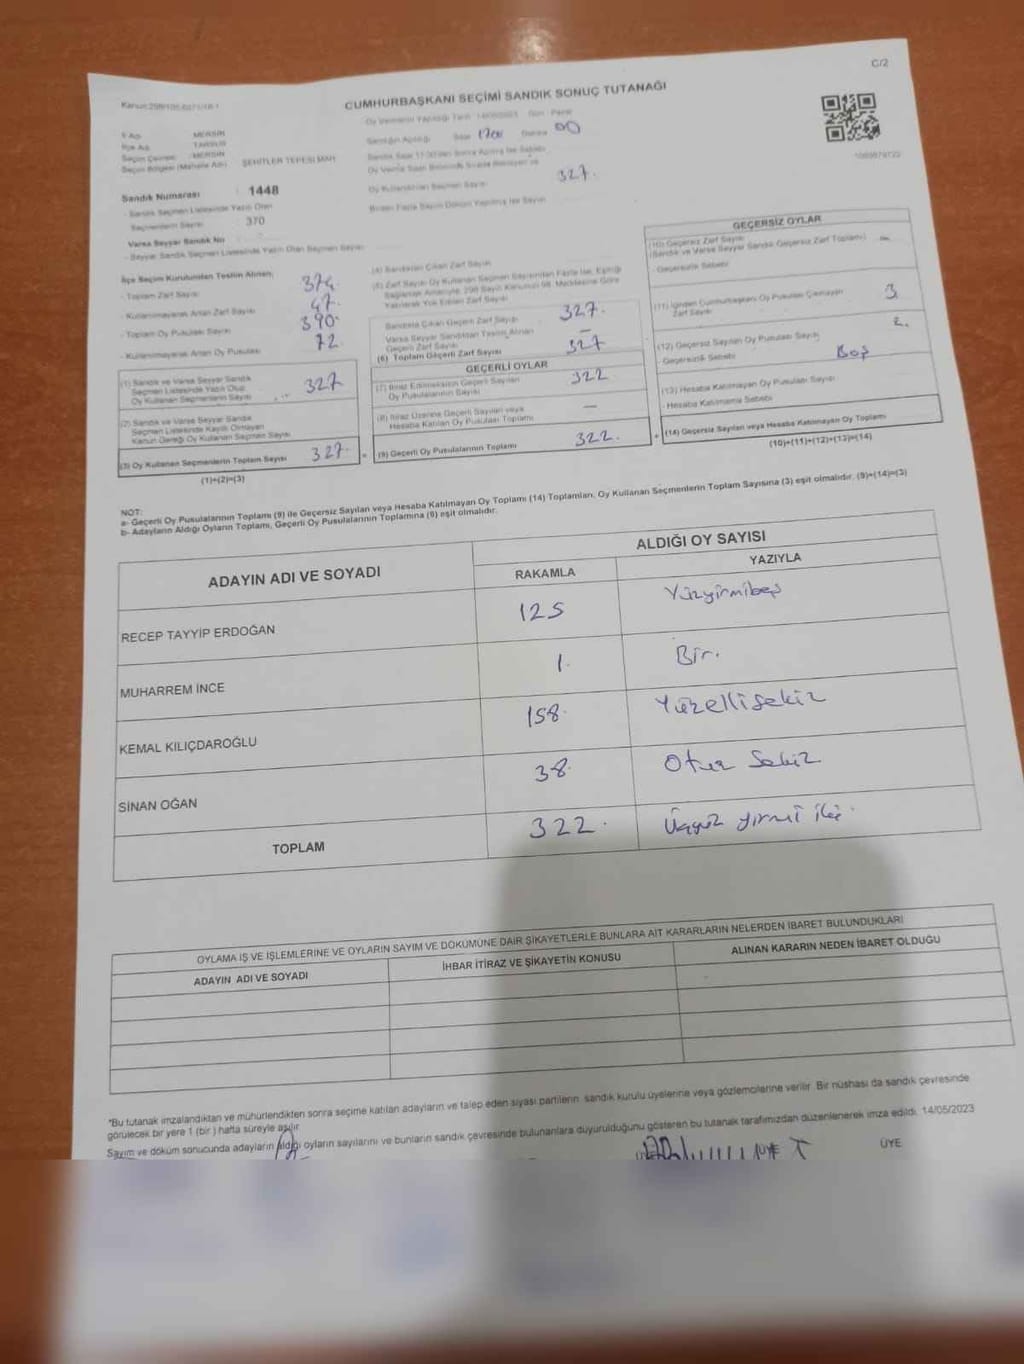 C/2
CUMHURBAŞKANI SEÇİMİ SANDIK SONUÇ TUTANAĞI
MERSİN
TARSUS
MERSİN
Seçim Bölgesi (Mahalle Adı) ŞEHİTLER TEPESİ MAH.
Sandık Numarası : 1448
- Sandık Seçmen Listesinde Yazılı Olan
Seçmenlerin Sayısı : 370
Varsa Seyyar Sandık No
- Seyyar Sandık Seçmen Listesinde Yazılı Olan Seçmen Sayısı
Oy Kullanan Seçmen Sayısı 327.
İlçe Seçim Kurulundan Teslim Alınan;
- Toplam Zarf Sayısı 374
- Kullanılmayarak Artan Zarf Sayısı 47.
- Toplam Oy Pusulası Sayısı 390
- Kullanılmayarak Artan Oy Pusulası 72
(1) Sandık ve Varsa Seyyar Sandık
Seçmen Listesinde Yazılı Olup
Oy Kullanan Seçmenlerin Sayısı 327
(2) Sandık ve Varsa Seyyar Sandık
Seçmen Listesinde Kayıtlı Olmayan
Kanun Gereği Oy Kullanan Seçmen Sayısı
(3) Oy Kullanan Seçmenlerin Toplam Sayısı 327.
(1)+(2)=(3)
(4) Sandıktan Çıkan Zarf Sayısı
(5) Zarf Sayısı Oy Kullanan Seçmen Sayısından Fazla İse, Eşitliği
Sağlamak Amacıyla; 298 Sayılı Kanunun 98. Maddesine Göre
Yakılarak Yok Edilen Zarf Sayısı
Sandıkta Çıkan Geçerli Zarf Sayısı 327.
Varsa Seyyar Sandıktan Teslim Alınan
Geçerli Zarf Sayısı –
(6) Toplam Geçerli Zarf Sayısı 327
GEÇERLİ OYLAR
(7) İtiraz Edilmeksizin Geçerli Sayılan
Oy Pusulasının Sayısı 322
(8) İtiraz Üzerine Geçerli Sayılan veya
Hesaba Katılan Oy Pusulası Toplamı –
(9) Geçerli Oy Pusulalarının Toplamı 322.
GEÇERSİZ OYLAR
(10) Geçersiz Zarf Sayısı
(Sandık ve Varsa Seyyar Sandık Geçersiz Zarf Toplamı) –
- Geçersizlik Sebebi
(11) İçinden Cumhurbaşkanı Oy Pusulası Çıkmayan
Zarf Sayısı 3
(12) Geçersiz Sayılan Oy Pusulası Sayısı 2.
- Geçersizlik Sebebi Boş
(13) Hesaba Katılmayan Oy Pusulası Sayısı
- Hesaba Katılmama Sebebi
(14) Geçersiz Sayılan veya Hesaba Katılmayan Oy Toplamı
(10)+(11)+(12)+(13)=(14)
NOT:
a- Geçerli Oy Pusulalarının Toplamı (9) ile Geçersiz Sayılan veya Hesaba Katılmayan Oy Toplamı (14) Toplamları, Oy Kullanan Seçmenlerin Toplam Sayısına (3) eşit olmalıdır. (9)+(14)=(3)
b- Adayların Aldığı Oyların Toplamı, Geçerli Oy Pusulalarının Toplamına (9) eşit olmalıdır.
ADAYIN ADI VE SOYADI
ALDIĞI OY SAYISI
RAKAMLA YAZIYLA
RECEP TAYYİP ERDOĞAN 125 Yüzyirmibeş
MUHARREM İNCE 1. Bir.
KEMAL KILIÇDAROĞLU 158. Yüzellisekiz
SİNAN OĞAN 38. Otuz Sekiz
TOPLAM 322. Üçyüz yirmi iki.
OYLAMA İŞ VE İŞLEMLERİNE VE OYLARIN SAYIM VE DÖKÜMÜNE DAİR ŞİKAYETLERLE BUNLARA AİT KARARLARIN NELERDEN İBARET BULUNDUKLARI
ADAYIN ADI VE SOYADI İHBAR İTİRAZ VE ŞİKAYETİN KONUSU ALINAN KARARIN NEDEN İBARET OLDUĞU
*Bu tutanak imzalandıktan ve mühürlendikten sonra seçime katılan adayların ve talep eden siyasi partilerin sandık kurulu üyelerine veya gözlemcilerine verilir. Bir nüshası da sandık çevresinde
görülecek bir yere 1 (bir) hafta süreyle asılır.
Sayım ve döküm sonucunda adayların aldığı oyların sayılarını ve bunların sandık çevresinde bulunanlara duyurulduğunu gösteren bu tutanak tarafımızdan düzenlenerek imza edildi. 14/05/2023
ÜYE